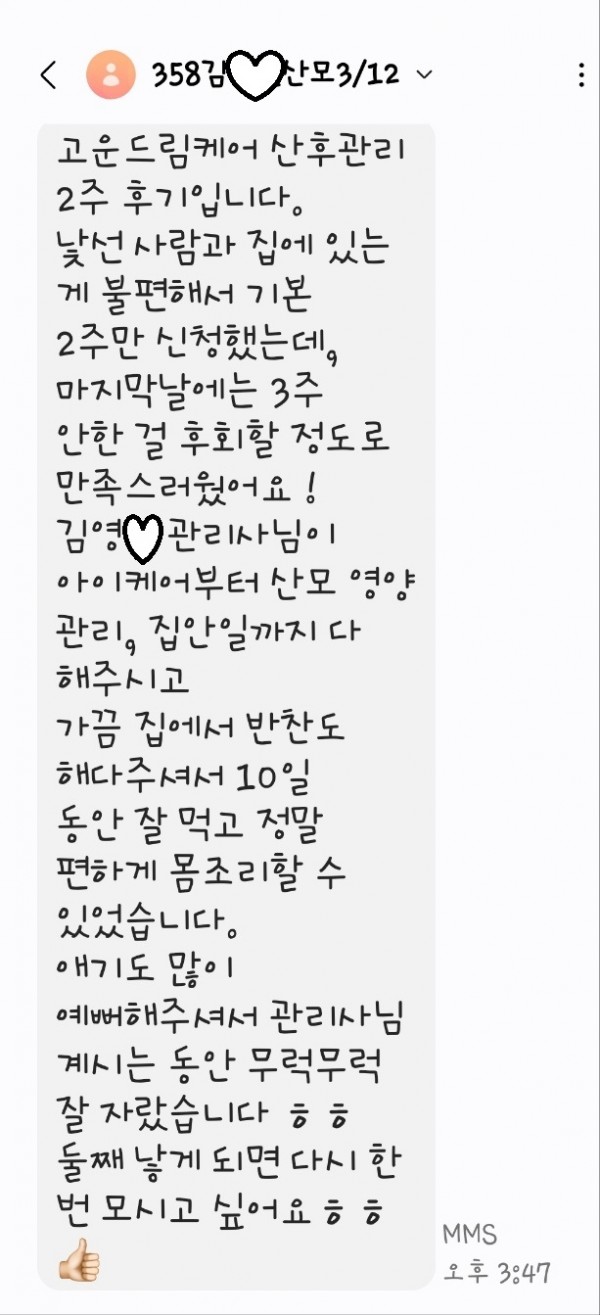 358김 산모3/12
고운드림케어 산후관리
2주 후기입니다.
낯선 사람과 집에 있는
게 불편해서 기본
2주만 신청했는데,
마지막날에는 3주
안한 걸 후회할 정도로
만족스러웠어요!
김영 관리사님이
아이케어부터 산모 영양
관리, 집안일까지 다
해주시고
가끔 집에서 반찬도
해다주셔서 10일
동안 잘 먹고 정말
편하게 몸조리할 수
있었습니다.
애기도 많이
예뻐해주셔서 관리사님
계시는 동안 무럭무럭
잘 자랐습니다 ㅎㅎ
둘째 낳게 되면 다시 한
번 모시고 싶어요ㅎㅎ
👍🏻
MMS
오후 3:47